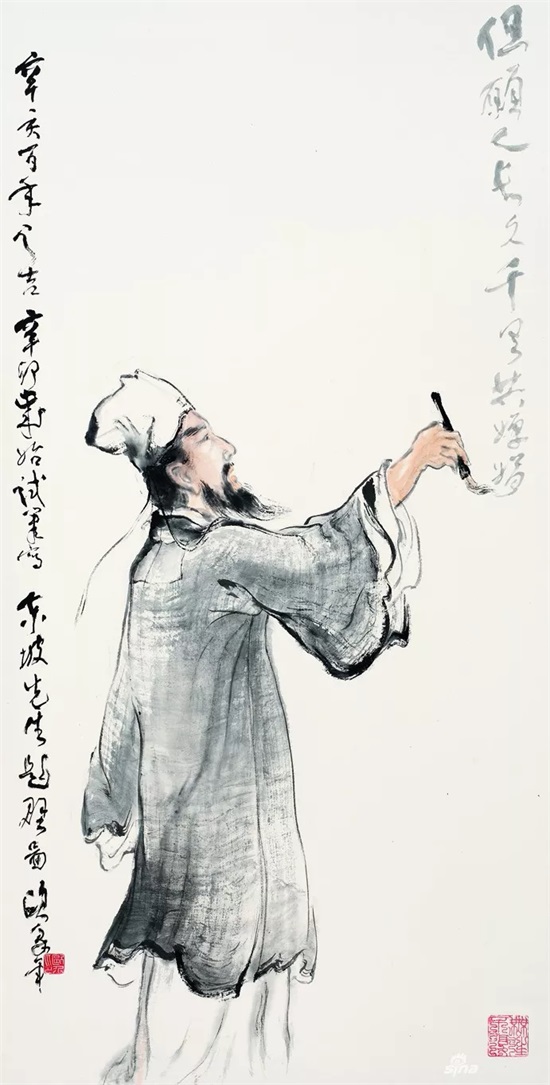 但願人長久千里共嬋娟
辛亥百年之吉 辛卯歲始試筆寫 東坡先生題壁圖 歐豪年
sina